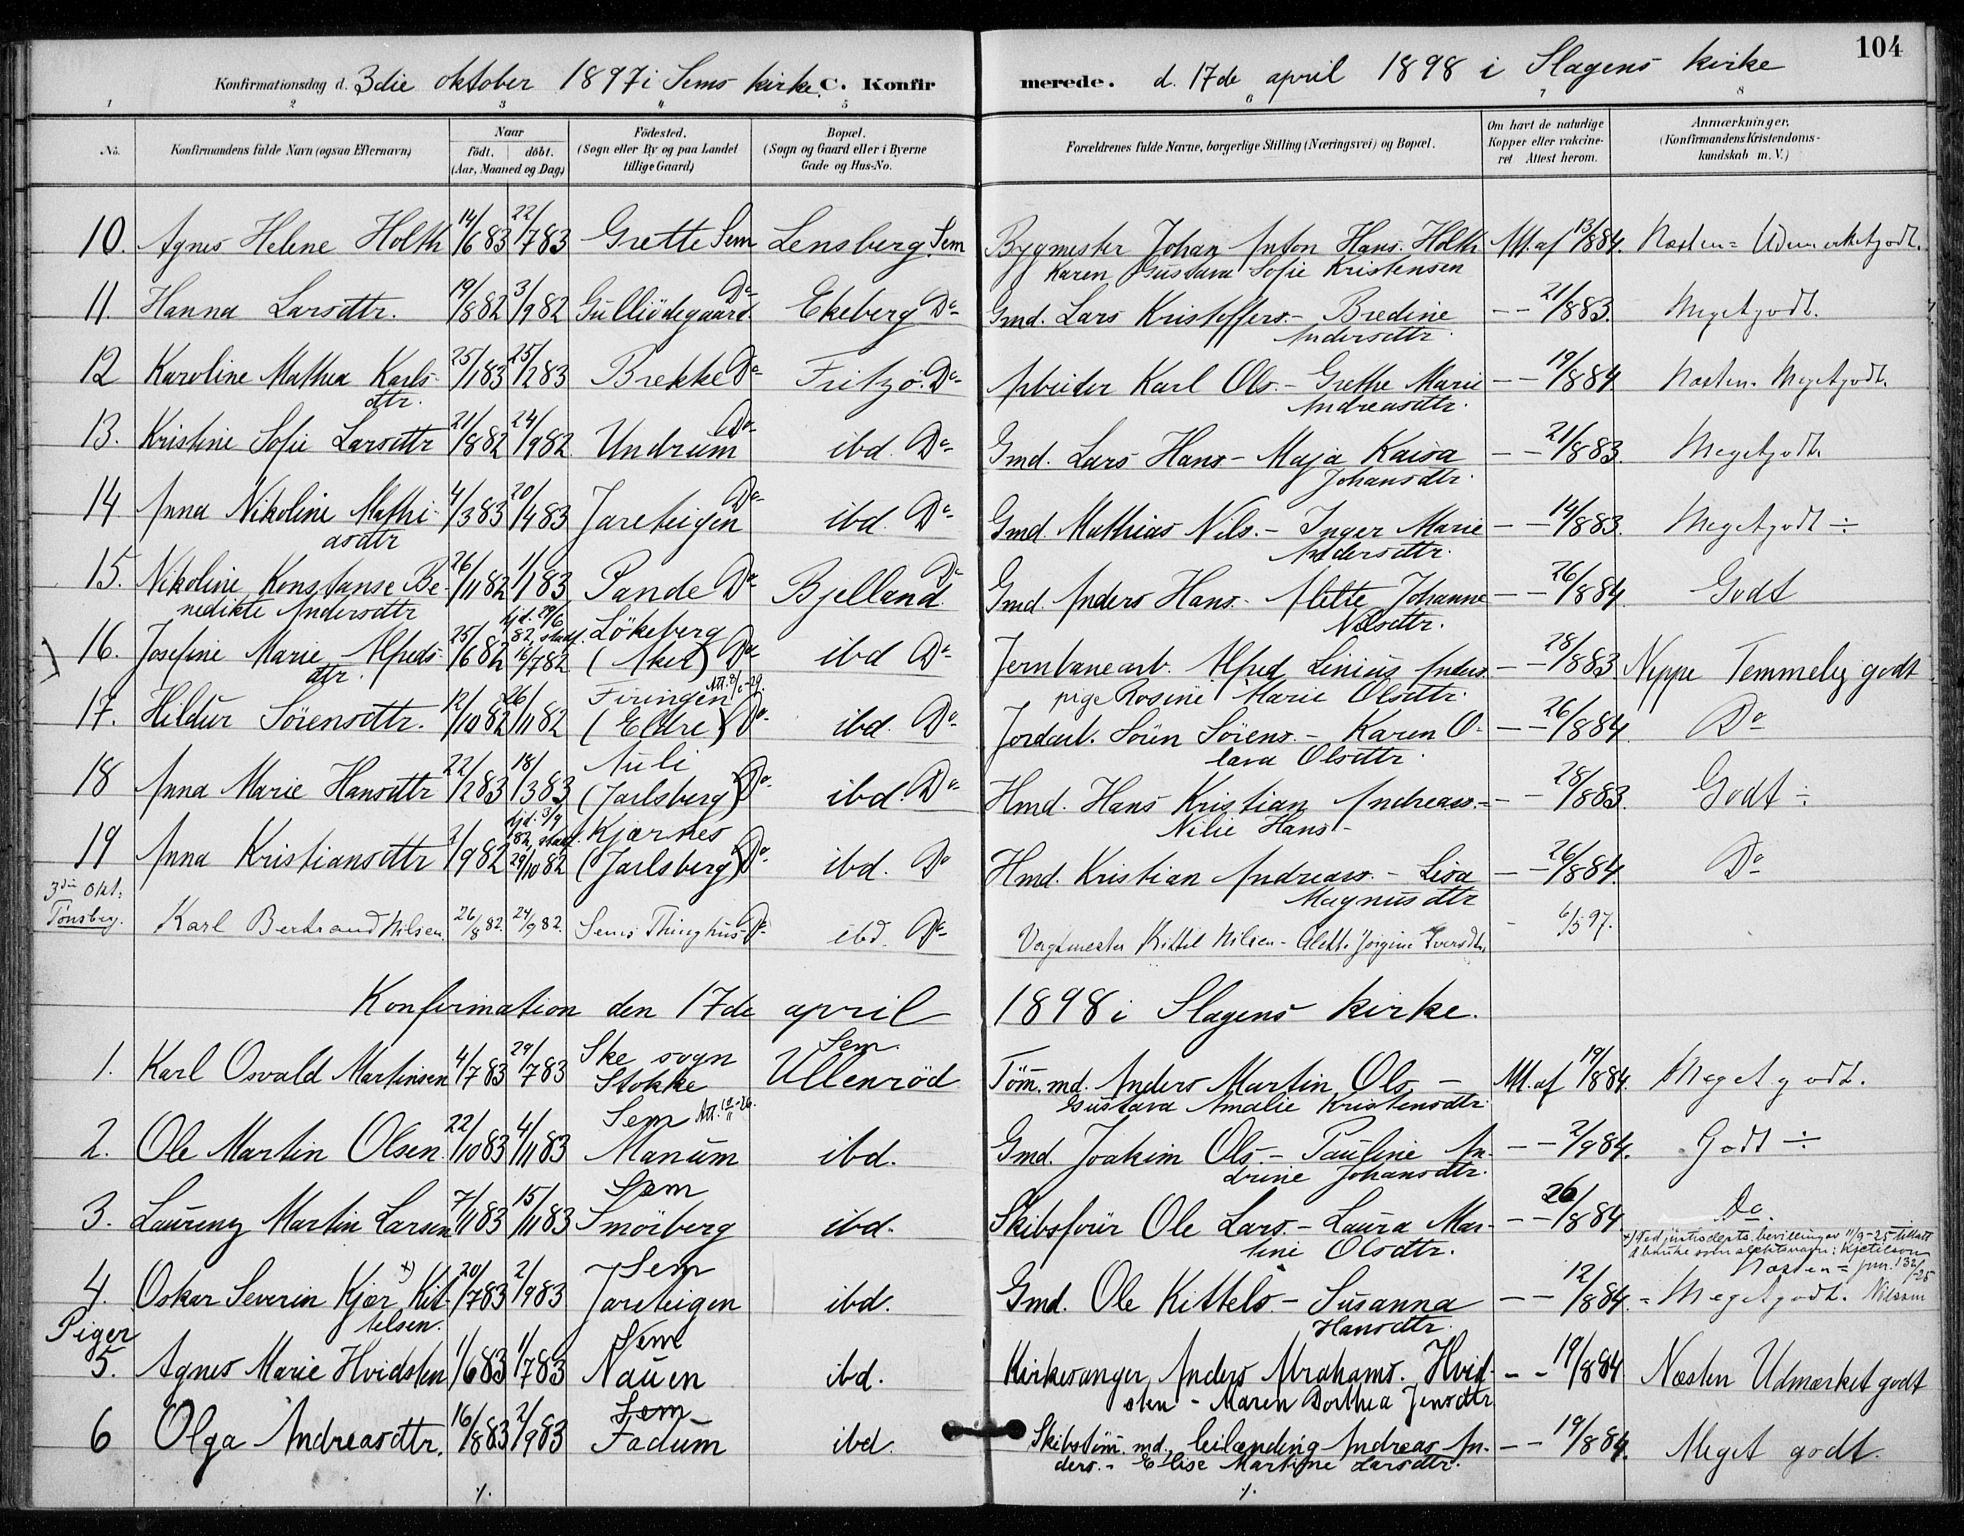 104
Konfirmationsdag d. 3die oktober 1897 i Sems kirke. C. Konfirmerede. d. 17de april 1898 i Slagens kirke
1 2 3 4 5 6 7 8
No. Konfirmandens fulde Navn (ogsaa Efternavn) Naar födt. döbt. (Aar, Maaned og Dag) Födested. (Sogn eller By og paa Landet tillige Gaard) Bopæl. (Sogn og Gaard eller i Byerne Gade og Hus-No. Forældrenes fulde Navne, borgerlige Stilling (Næringsvei) og Bopæl. Om havt de naturlige Kopper eller vakcineret Attest herom. Anmærkninger. (Konfirmandens Kristendomskundskab m. V.)
10. Agnes Helene Holth 14/6 83 22/7 83 Grette Sem Lensberg. Sem Bygmester Johan Anton Hans. Holth Att. af 13/8 84. Næsten = Udmerketgodt.
Karen Gustava Sofie Kristensen
11. Hanna Larsdtr. 19/8 82 3/9 82 Gulliödegaard Do Ekeberg Do Gmd. Lars Kristoffers. - Bredine - - 21/8 83. Megetgodt.
Andersdtr.
12 Karoline Mathea Karls- 25/1 83 25/2 83 Brekke Do Fritzö. Do Arbeider Karl Ols. - Grethe Marie - - 19/8 84 Næsten. Megetgodt.
dtr. Andreasdtr.
13. Kristine Sofie Larsdttr 21/8 82 24/9 82 Undrum Do ibd. Do Gmd. Lars Hans - Maja Kaisa - - 21/8 83. Megetgodt.
Johansdtr.
14 Anna Nikoline Mathi- 4/3 83 20/4 83 Jareteigen Do ibd. Do Gmd. Mathias Nils. - Inger Marie - - 14/8 83. Megetgodt ÷
asdtr Andersdtr.
15. Nikoline Konstanse Be- 26/11 82 1/1 83 Pande Do Bjelland Do Gmd. Anders Hans. - Alette Johanne - - 26/8 84. Godt
nedikte Andersdtr Nilsdtr.
16. Josefine Marie Alfreds- 25/6 82 hjd. 29/6 82, stadf. 16/7 82 Lökeberg (Aker) Do ibd Do Jernbanearb. Alfred Linius Anders. - - 28/8 83 Neppe Temmelig godt
dtr. pige Rosine Marie Olsdtr.
17. Hildur Sörensdtr. 12/10 82 26/11 82 Firingen (Ekre) Do ibd. Do Jordarb. Sören Sörens. - Karen O- - - 26/8 84. Do
lava Olsdtr.
18 Anna Marie Hansdtr 22/2 83 18/3 83 Auli (Jarlsberg) Do ibd. Do Hmd. Hans Kristian Andreass. - - 28/8 83. Godt ÷
Nilie Hans -
19 Anna Kristiansdtr 2/9 82 hjd. 3/9 82, stadf. 29/10 82 Kjærnes (Jarlsberg) Do ibd. Do Hmd. Kristian Andreass. - Lisa - - 26/8 84. Do
Magnusdtr
3die Okt:
Tönsberg. Karl Bertrand Nilsen. 26/8 82. 24/9 82. Sems Thinghus Do ibd. Do Vegtmester Kittil Nilsen - Alett. Jörgine Iversdtr. - 6/5 97.
Konfirmation den 17de april 1898 i Slagens kirke.
1. Karl Osvald Martinsen 4/7 83 29/7 83 Ske sogn Stokke Sem. Ullenröd Töm. md. Anders Martin Ols. - Att. af 19/8 84. Meget godt.
Gustava Amalie Kristensdtr.
2. Ole Martin Olsen 22/10 83 4/11 83 Sem Manum ibd. Gmd. Joakim Ols. - Pauline An- - - 2/9 84. Godt ÷
drine Johansdtr.
3. Laurenz Martin Larsen 7/11 83 15/11 83 Sem Smörberg ibd. Skibsförer Ole Lars. - Laura Mar- - - 26/8 84 Do.
tine Olsdtr.
x) Ved justisdepts. bevilling av 11/9-25 tillatt
å bruke som slektsnavn: Kjetilson
4. Oskar Severin Kjær x) Kit- 20/7 83 2/9 83 Sem Jareteigen ibd. Gmd. Ole Kittels - Susanna - - 12/8 84. Næsten = Megetgodt.
telsen. Hansdtr. Nilssen
Piger
5. Agnes Marie Hvidsten 1/6 83 1/7 83 Sem Nauen ibd. Kirkesanger Anders Abrahams. Hvid- - - 19/8 84 Næsten Udmærket godt
sten - Maren Dorthea Jensdtr
6 Olga Andreasdtr. 16/8 83 2/9 83 Sem Fadum ibd. Skibstöm. md., leilænding Andreas An- - - 19/8 84. Meget godt.
ders. - Elise Martine Larsdtr.